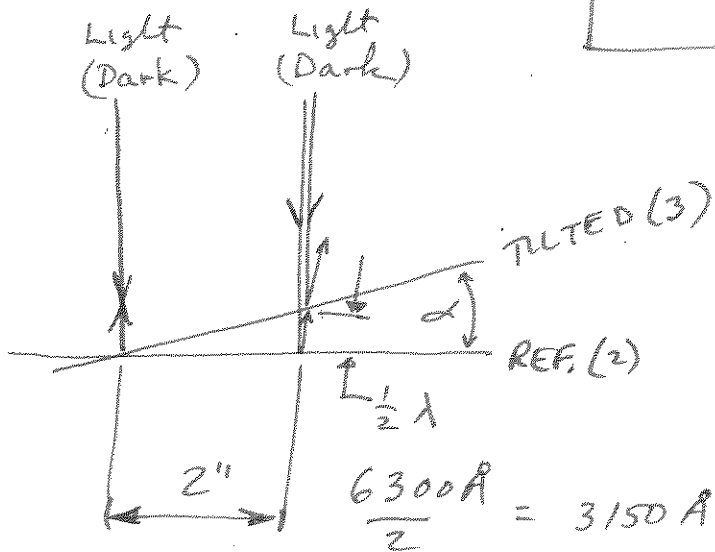 Light
(Dark)
Light
(Dark)
TILTED (3)
α
REF. (2)
1/2 λ
2"
6300 Å / 2 = 3150 Å